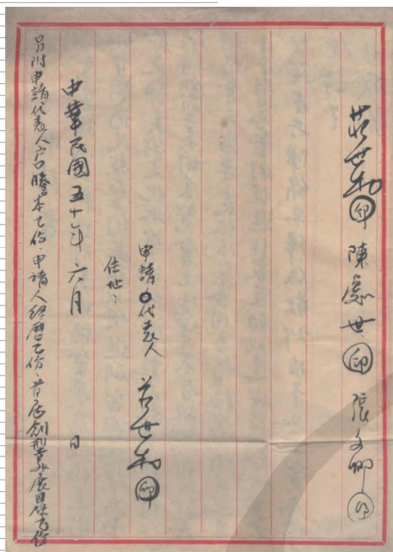 黃世和㊞ 陳處世㊞ 張文卿㊞
申請代表人 黃世和㊞
住址：
中華民國五十年六月 日
另附申請代表人戶口謄本乙份、申請人經歷乙份、首届創型畫展目錄乙份